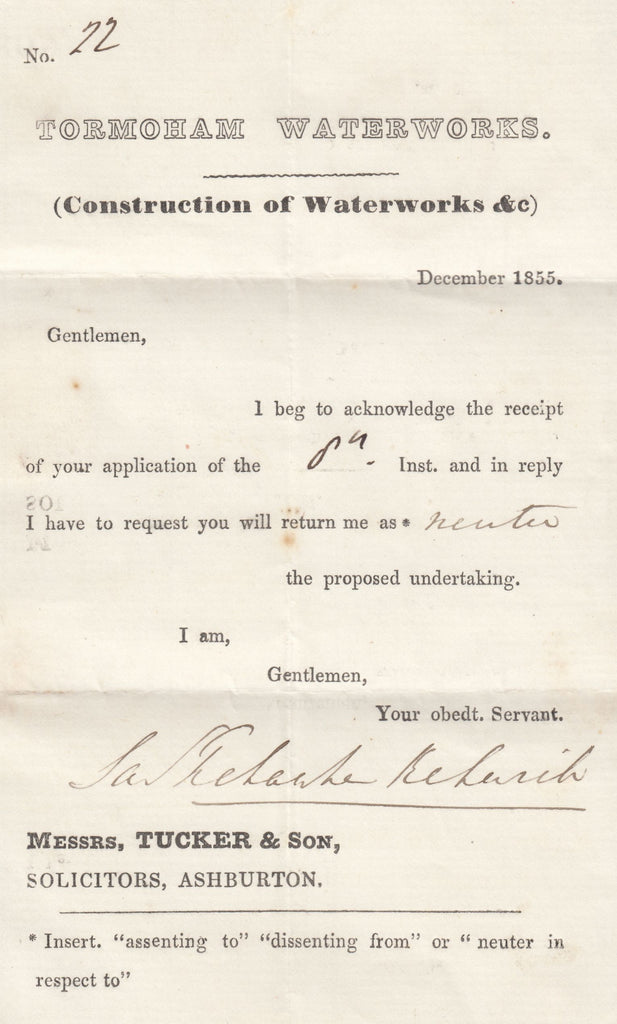 No. 22
TORMOHAM WATERWORKS.
(Construction of Waterworks &c)
December 1855.
Gentlemen,
I beg to acknowledge the receipt
of your application of the 8th. Inst. and in reply
I have to request you will return me as * neuter
the proposed undertaking.
I am,
Gentlemen,
Your obedt. Servant.
MESSRS, TUCKER & SON,
SOLICITORS, ASHBURTON.
* Insert. “assenting to” “dissenting from” or “ neuter in
respect to”